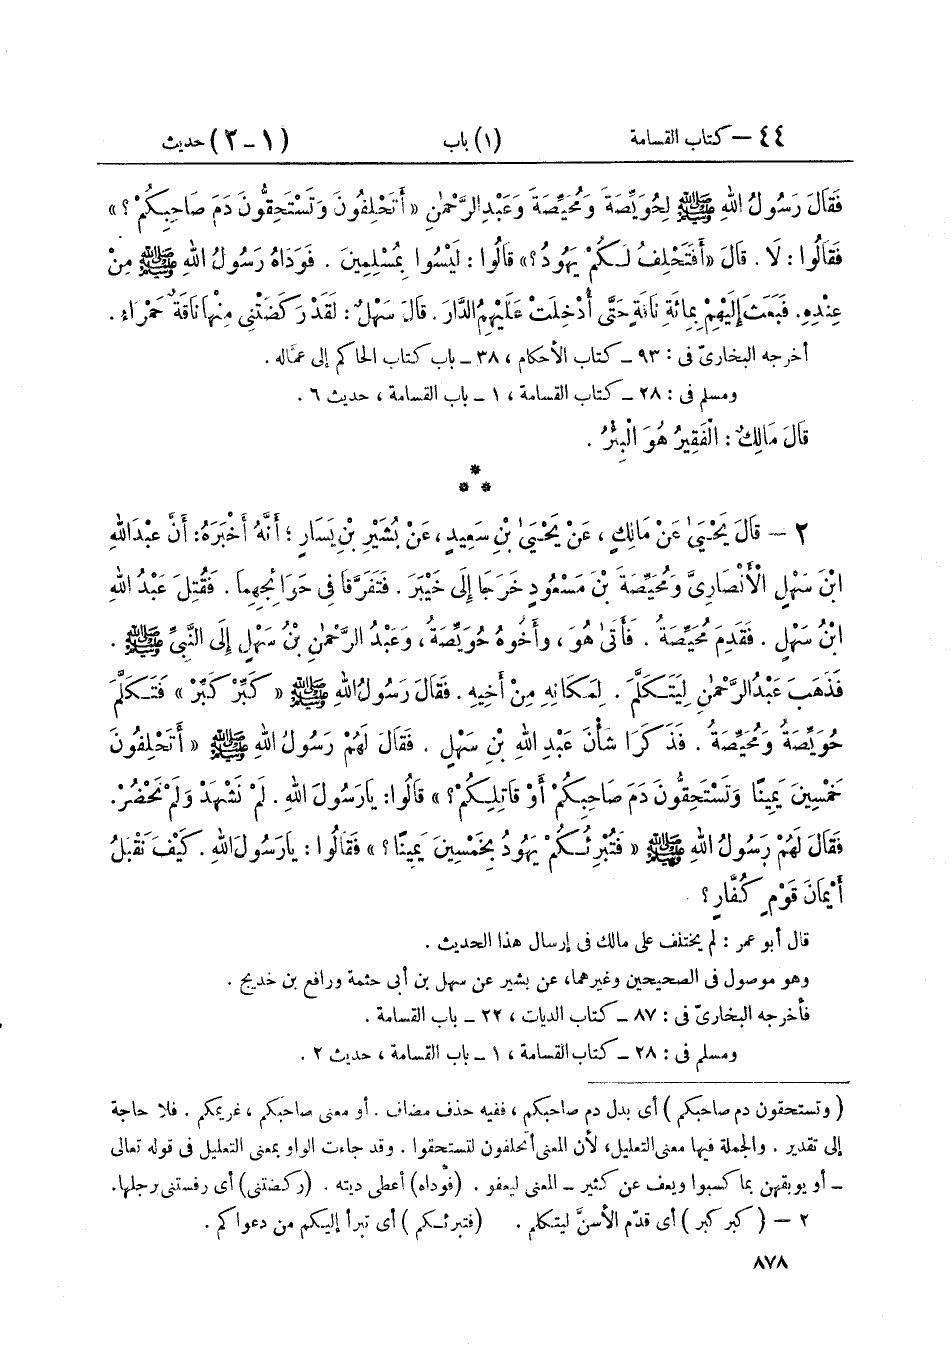 ٤٤ – كتاب القسامة (١) باب (١ - ٢) حديث
فَقَالَ رَسُولُ اللهِ ﷺ لِحُوَيِّصَةَ وَمُحَيِّصَةَ وَعَبْدِ الرَّحْمٰنِ « أَتَحْلِفُونَ وَتَسْتَحِقُّونَ دَمَ صَاحِبِكُمْ ؟ »
فَقَالُوا : لَا . قَالَ « أَفَتَحْلِفُ لَكُمْ يَهُودُ ؟ » قَالُوا : لَيْسُوا بِمُسْلِمِينَ . فَوَدَاهُ رَسُولُ اللهِ ﷺ مِنْ
عِنْدِهِ. فَبَعَثَ إِلَيْهِمْ بِمِائَةِ نَاقَةٍ حَتَّى أُدْخِلَتْ عَلَيْهِمُ الدَّارَ . قَالَ سَهْلٌ : لَقَدْ رَكَضَتْنِى مِنْهَا نَاقَةٌ حَمْرَاء .
أخرجه البخارىّ فى : ٩٣ ـ كتاب الأحكام ، ٣٨ ـ باب كتاب الحاكم إلى عمّاله .
ومسلم فى : ٢٨ ـ كتاب القسامة ، ١ ـ باب القسامة ، حديث ٦ .
قَالَ مَالِكٌ : الْفَقِيرُ هُوَ الْبِئْرُ .
*
* *
٢ – قَالَ يَحْيَىٰ عَنْ مَالِكٍ ، عَنْ يَحْيَىٰ بْنِ سَعِيدٍ ، عَنْ بُشَيْرِ بْنِ يَسَارٍ ؛ أَنَّهُ أَخْبَرَهُ : أَنَّ عَبْدَ اللهِ
ابْنَ سَهْلٍ الْأَنْصَارِىَّ وَمُحَيِّصَةَ بْنَ مَسْعُودٍ خَرَجَا إِلَى خَيْبَرَ . فَتَفَرَّقَا فِى حَوَائِجِهِمَا . فَقُتِلَ عَبْدُ اللهِ
ابْنُ سَهْلٍ . فَقَدِمَ مُحَيِّصَةُ . فَأَتَى هُوَ ، وَأَخُوهُ حُوَيِّصَةُ ، وَعَبْدُ الرَّحْمٰنِ بْنُ سَهْلٍ إِلَى النَّبِىِّ ﷺ .
فَذَهَبَ عَبْدُ الرَّحْمٰنِ لِيَتَكَلَّمَ . لِمَكَانِهِ مِنْ أَخِيهِ . فَقَالَ رَسُولُ اللهِ ﷺ « كَبِّرْ كَبِّرْ » فَتَكَلَّمَ
حُوَيِّصَةُ وَمُحَيِّصَةُ . فَذَكَرَا شَأْنَ عَبْدِ اللهِ بْنِ سَهْلٍ . فَقَالَ لَهُمْ رَسُولُ اللهِ ﷺ « أَتَحْلِفُونَ
خَمْسِينَ يَمِينًا وَتَسْتَحِقُّونَ دَمَ صَاحِبِكُمْ أَوْ قَاتِلِكُمْ ؟ » قَالُوا : يَارَسُولَ اللهِ . لَمْ نَشْهَدْ وَلَمْ نَحْضُرْ .
فَقَالَ لَهُمْ رَسُولُ اللهِ ﷺ « فَتُبْرِئُكُمْ يَهُودُ بِخَمْسِينَ يَمِينًا ؟ » فَقَالُوا : يَارَسُولَ اللهِ . كَيْفَ نَقْبَلُ
أَيْمَانَ قَوْمٍ كُفَّارٍ ؟
قال أبو عمر : لم يختلف على مالك فى إرسال هذا الحديث .
وهو موصول فى الصحيحين وغيرهما، عن بشير عن سهل بن أبى حثمة ورافع بن خديج .
فأخرجه البخارىّ فى : ٨٧ ـ كتاب الديات ، ٢٢ ـ باب القسامة .
ومسلم فى : ٢٨ ـ كتاب القسامة ، ١ ـ باب القسامة ، حديث ٢ .
( وتستحقون دم صاحبكم ) أى بدل دم صاحبكم ، ففيه حذف مضاف . أو معنى صاحبكم ، غريمكم . فلا حاجة
إلى تقدير . والجملة فيها معنى التعليل، لأن المعنى أتحلفون لتستحقوا . وقد جاءت الواو بمعنى التعليل فى قوله تعالى
ـ أو يوبقهن بما كسبوا ويعف عن كثير ـ المعنى ليعفو . (فوداه) أعطى ديته . (ركضتنى) أى رفستنى برجلها.
٢ – ( كبر كبر ) أى قدّم الأسنّ ليتكلم . (فتبرئكم ) أى تبرأ إليكم من دعواكم .
٨٧٨